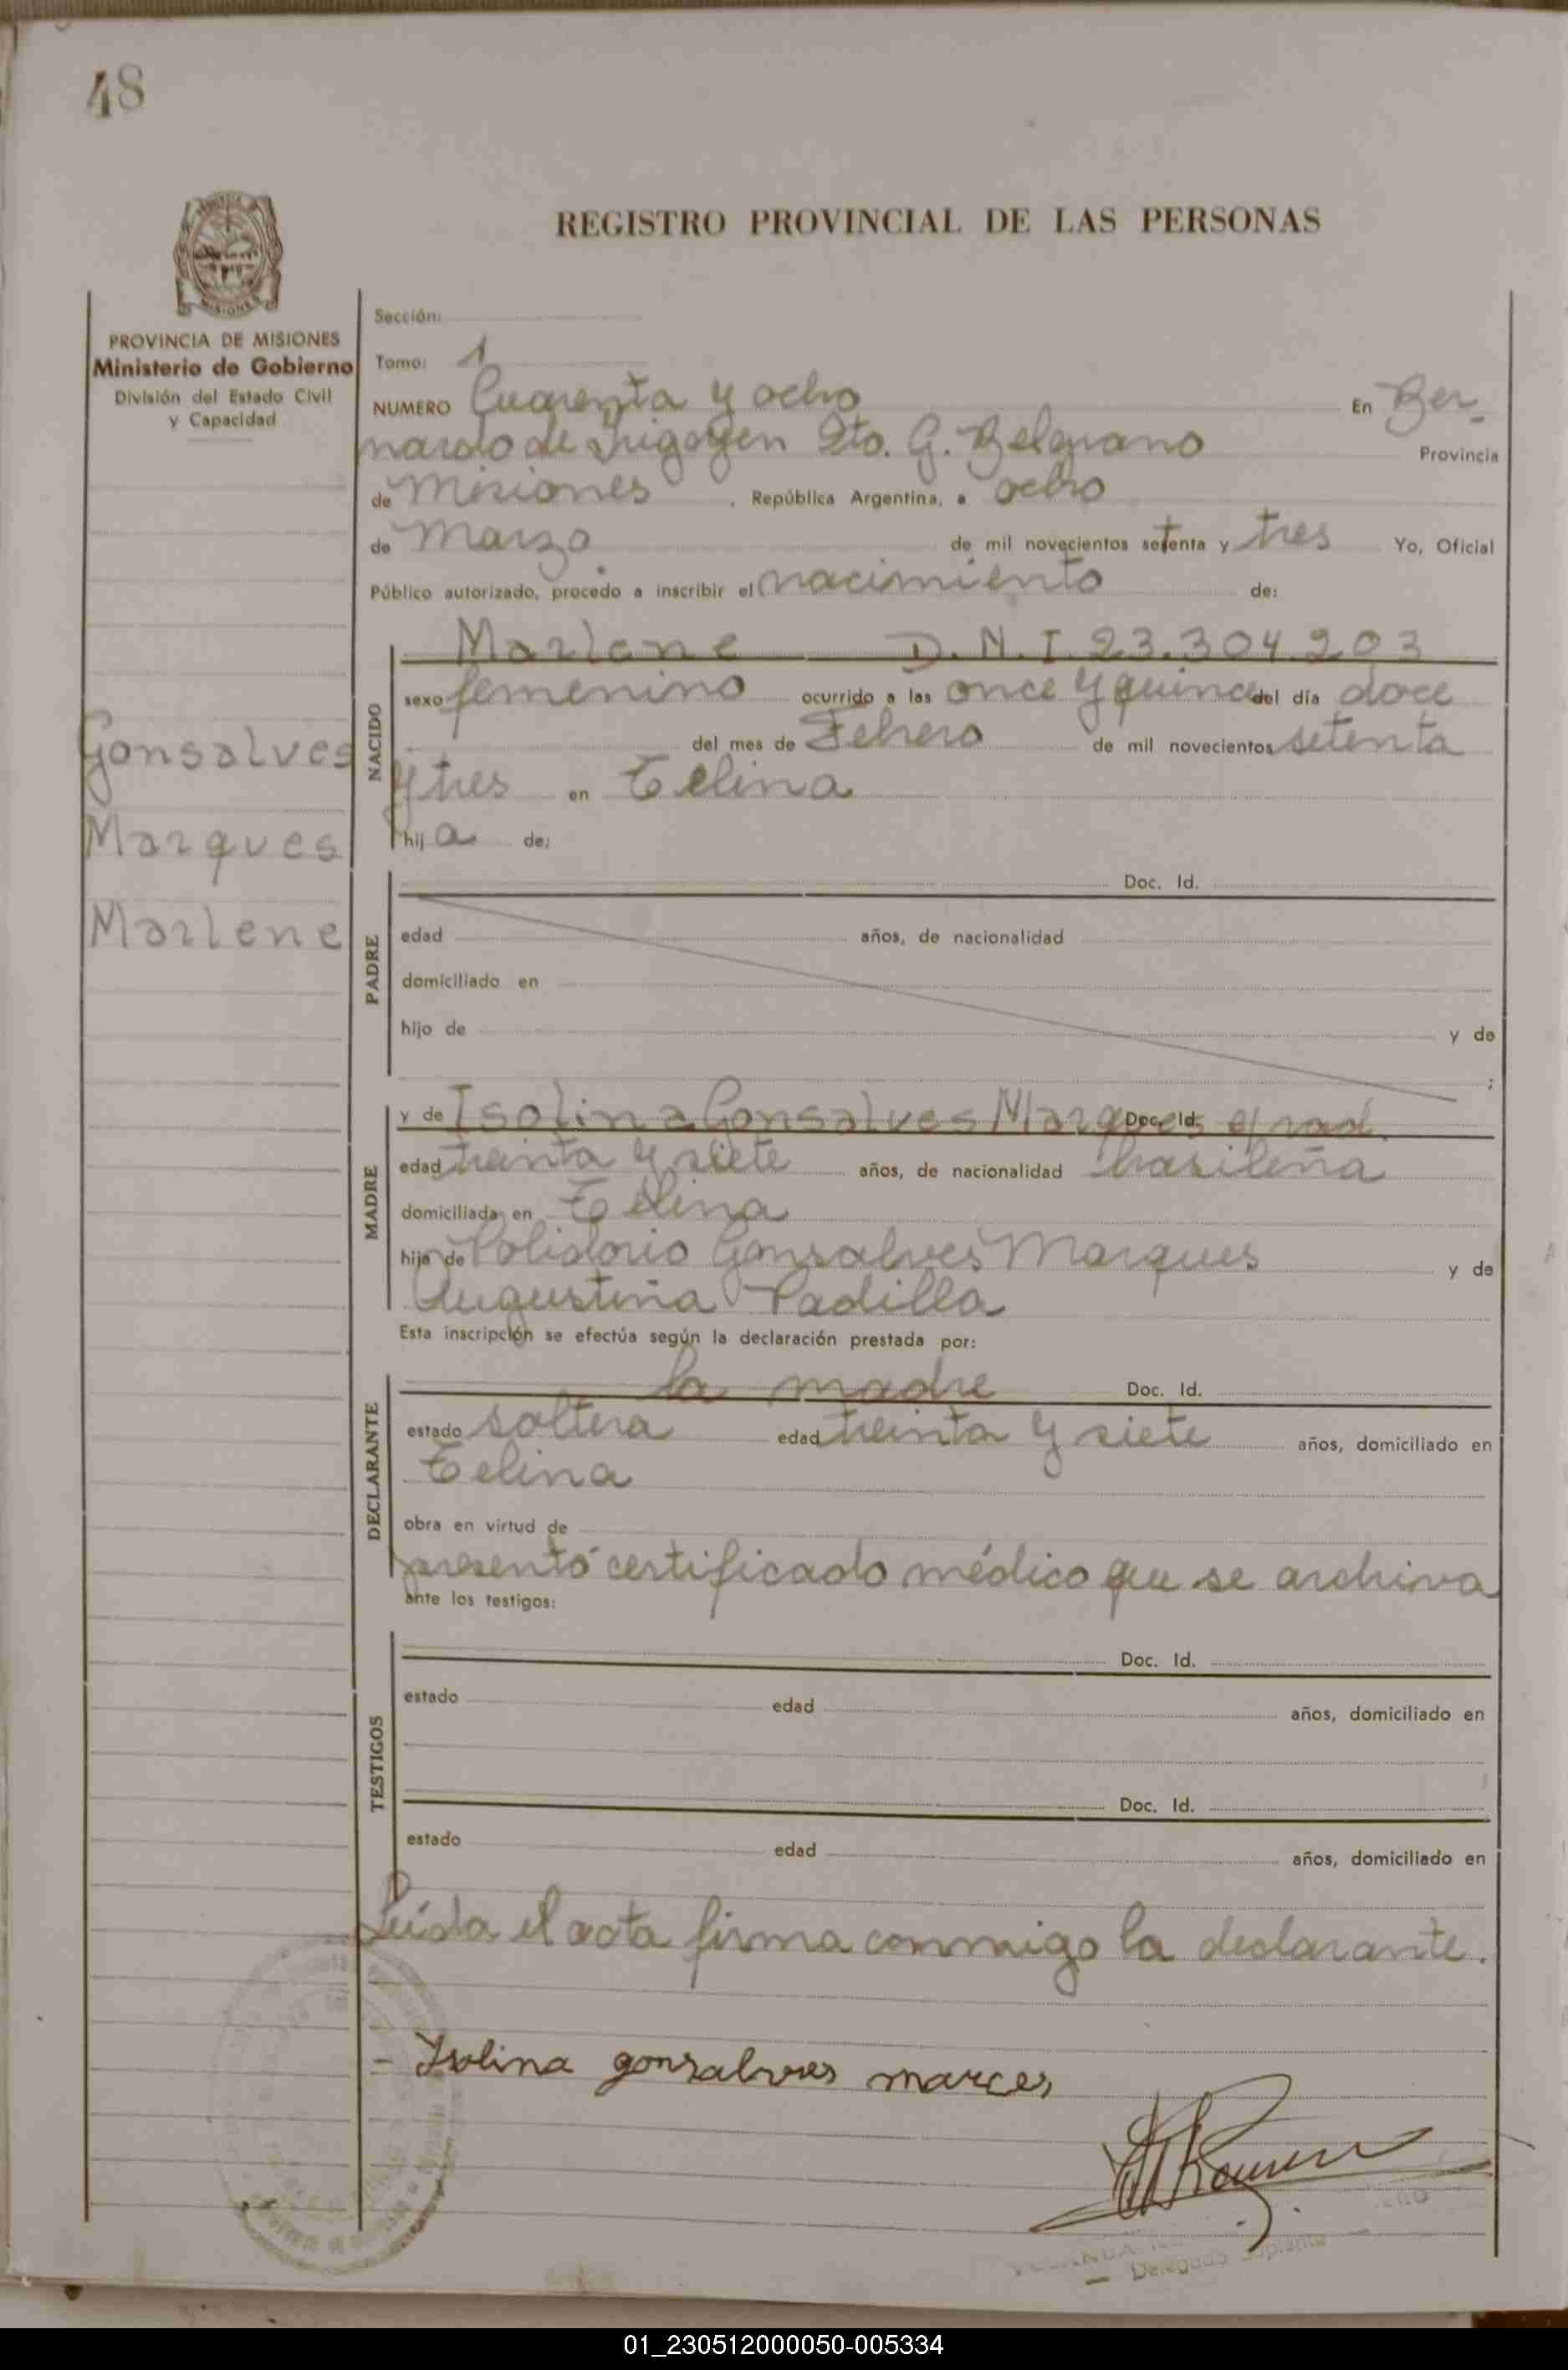 48
REGISTRO PROVINCIAL DE LAS PERSONAS
MISIONES
PROVINCIA DE MISIONES
Ministerio de Gobierno
División del Estado Civil
y Capacidad
Gonsalves
Marques
Marlene
Sección:
Tomo: 1
NUMERO Cuarenta y ocho En Ber-
nardo de Irigoyen Dto. G. Belgrano Provincia
de Misiones, República Argentina, a ocho
de Marzo de mil novecientos setenta y tres Yo, Oficial
Público autorizado, procedo a inscribir el nacimiento de:
NACIDO
Marlene D.N.I. 23.304.203
sexo femenino ocurrido a las once y quince del día doce
del mes de Febrero de mil novecientos setenta
y tres en Celina
hija de:
PADRE
Doc. Id.
edad años, de nacionalidad
domiciliado en
hijo de y de
;
MADRE
y de Isolina Gonsalves Marques Doc. Id.
edad treinta y siete años, de nacionalidad brasileña
domiciliada en Celina
hija de Polidorio Gonsalves Marques y de
Augustiña Padilla
Esta inscripción se efectúa según la declaración prestada por:
DECLARANTE
la madre Doc. Id.
estado soltera edad treinta y siete años, domiciliado en
Celina
obra en virtud de
presentó certificado médico que se archiva
ante los testigos:
TESTIGOS
Doc. Id.
estado edad años, domiciliado en
Doc. Id.
estado edad años, domiciliado en
Leída el acta firma conmigo la declarante.
- Isolina gonsalves marces
Delegado Suplente
01_230512000050-005334